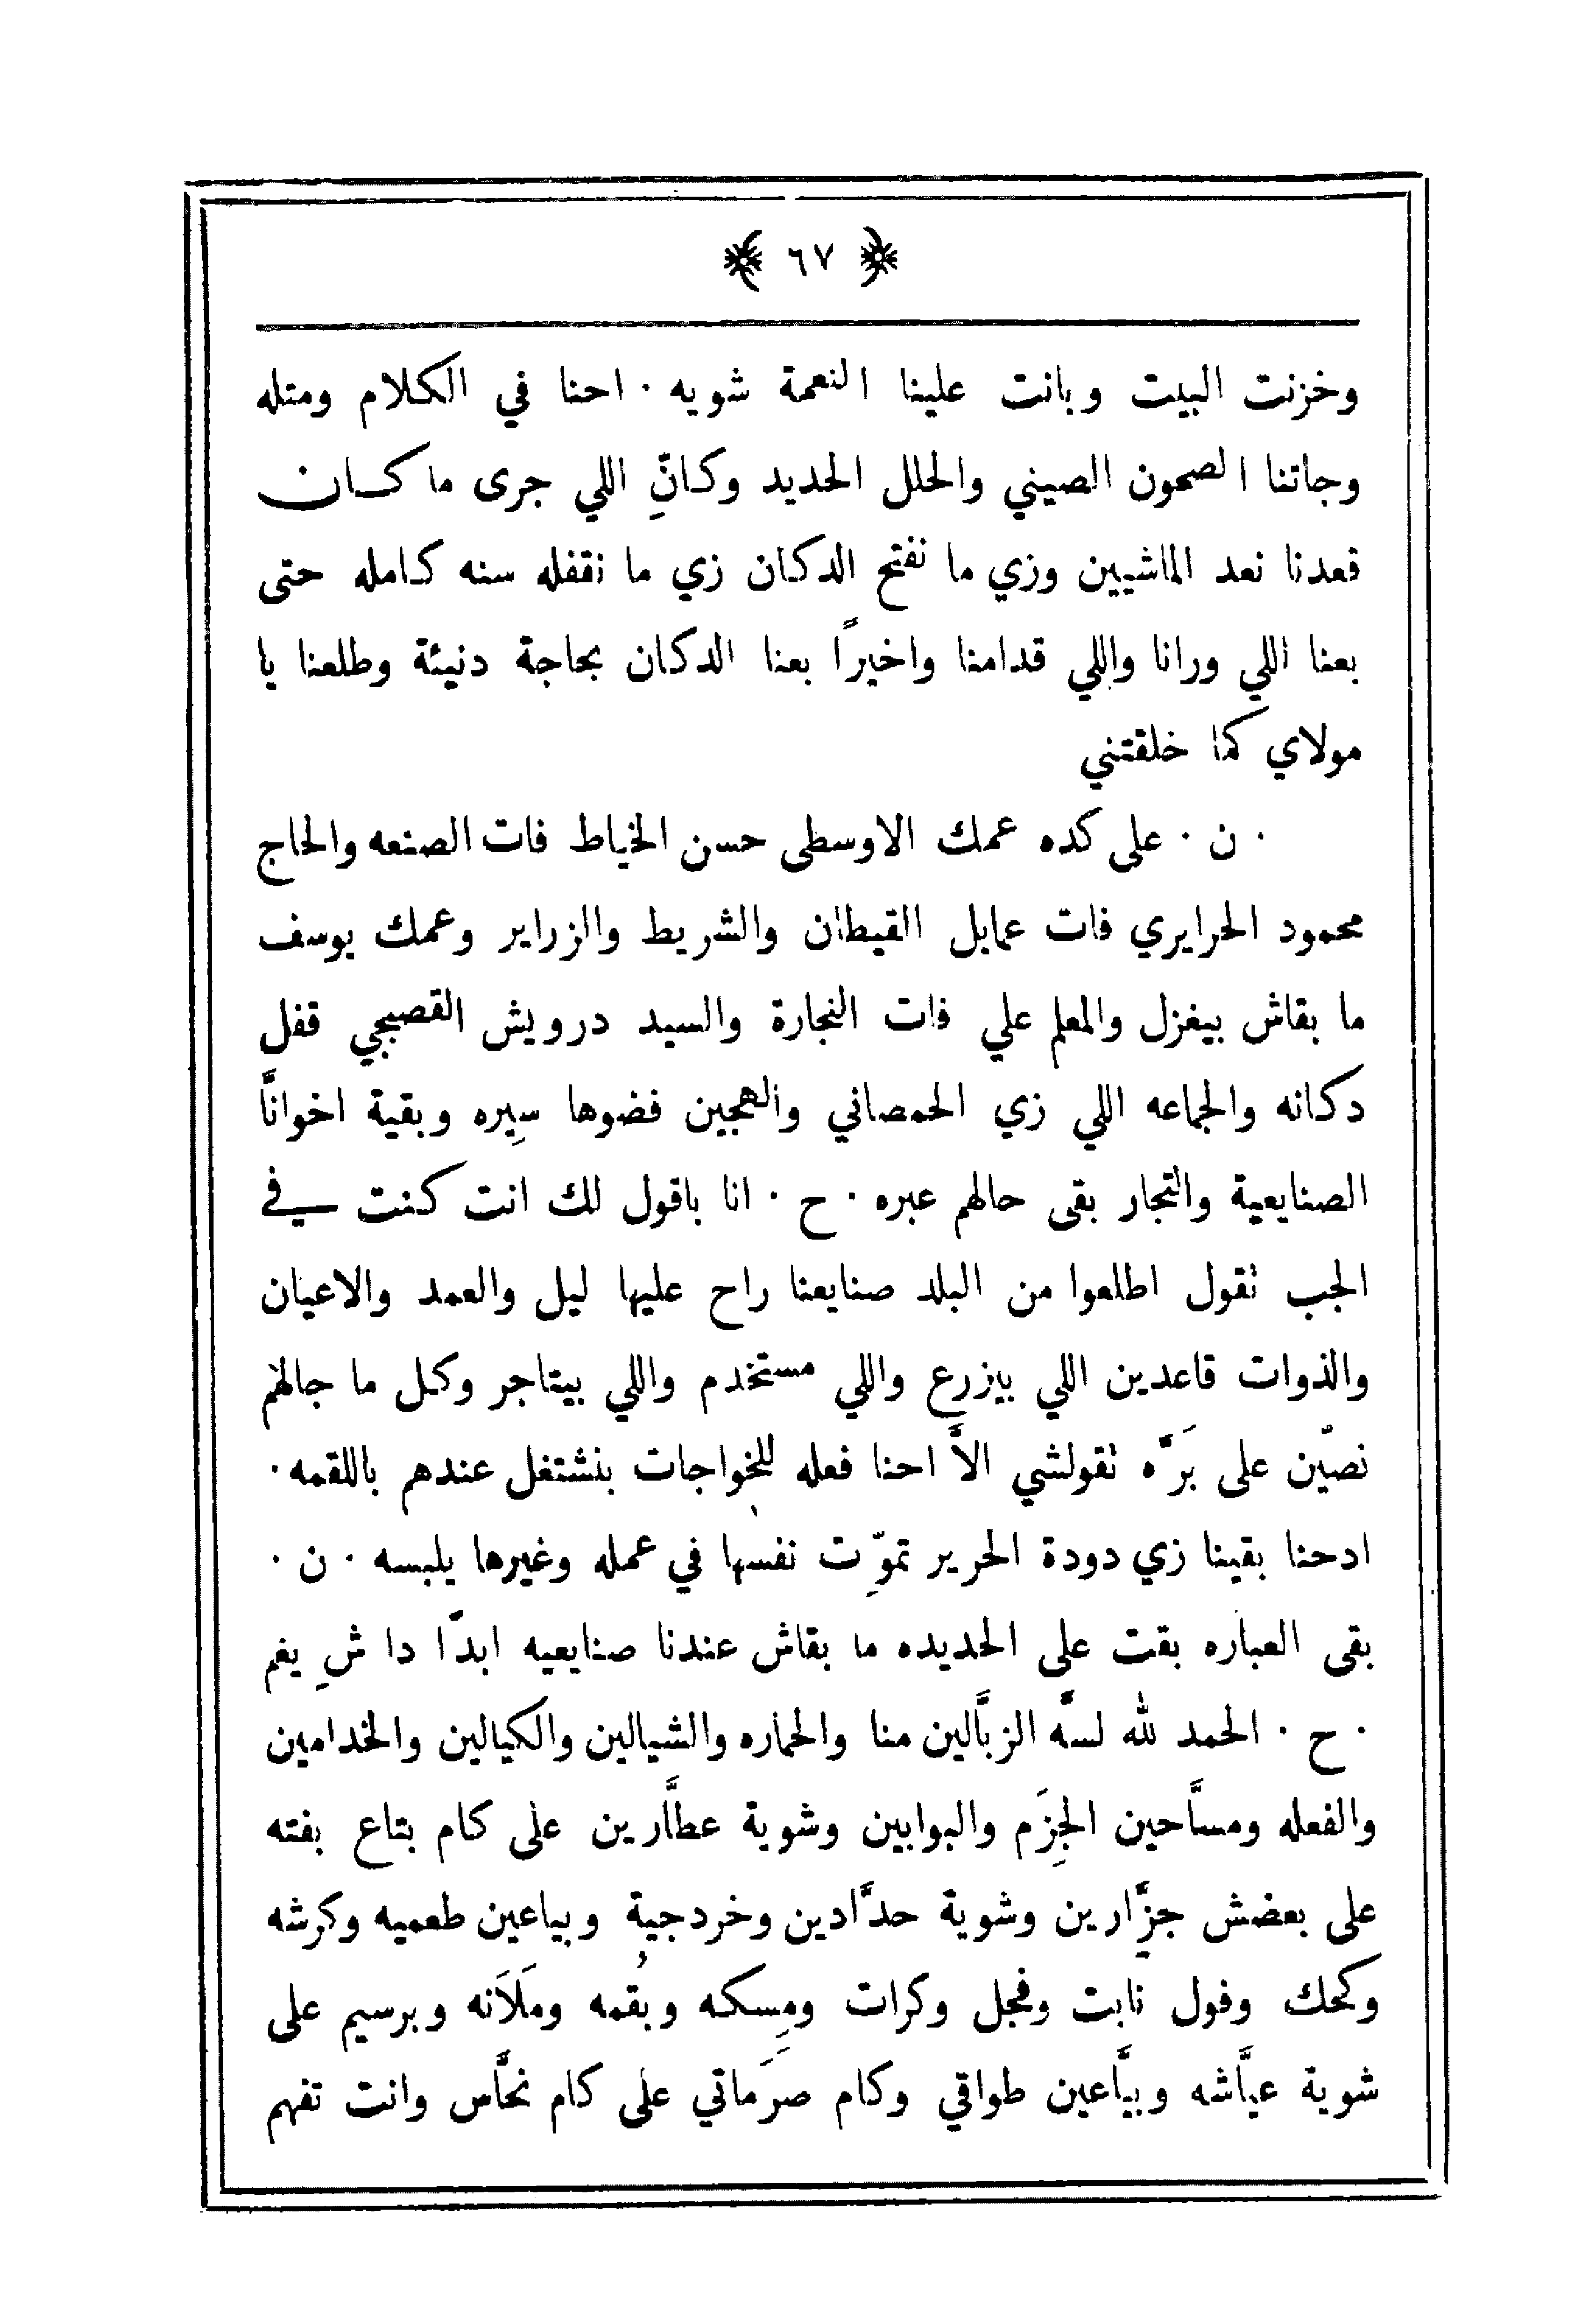 ﴿ ٦٧ ﴾
وخزنت البيت وبانت علينا النعمة شويه · احنا في الكلام ومتله
وجاتنا الصحون الصيني والحلل الحديد وكانّ اللي جرى ما كان
قعدنا نعد الماشيين وزي ما نفتح الدكان زي ما نقفله سنه كامله حتى
بعنا اللي ورانا واللي قدامنا واخيرًا بعنا الدكان بحاجة دنيئة وطلعنا يا
مولاي كما خلقتني
· ن · على كده عمك الاوسطى حسن الخياط فات الصنعه والحاج
محمود الحرايري فات عمايل القيطان والشريط والزراير وعمك يوسف
ما بقاش بيغزل والمعلم علي فات النجارة والسيد درويش القصبجي قفل
دكانه والجماعه اللي زي الحمصاني والهجين فضوها سيِره وبقية اخوانَّا
الصنايعية والتجار بقى حالهم عبره · ح · انا باقول لك انت كنت في
الجب نقول اطلعوا من البلد صنايعنا راح عليها ليل والعمد والاعيان
والذوات قاعدين اللي بيزرع واللي مستخدم واللي بيتاجر وكل ما جالهم
نصّين على بَرَّه نقولشي الاَّ احنا فعله للخواجات بنشتغل عندهم باللقمه ·
ادحنا بقينا زي دودة الحرير تموِّت نفسها في عمله وغيرها يلبسه · ن ·
بقى العباره بقت على الحديده ما بقاش عندنا صنايعيه ابدًا دا شِ يغم
· ح · الحمد لله لسَّه الزبَّالين منا والحماره والشيالين والكيالين والخدامين
والفعله ومسَّاحين الجِزَم والبوابين وشوية عطَّارين على كام بتاع بفته
على بعضش جزَّارين وشوية حدَّادين وخردجية وبياعين طعميه وكرشه
وكحك وفول نابت وفجل وكرات ومِسكه وبُقمه ومَلاَنه وبرسيم على
شوية عيَّاشه وبيَّاعين طواقي وكام صرَماتي على كام نحَّاس وانت تفهم